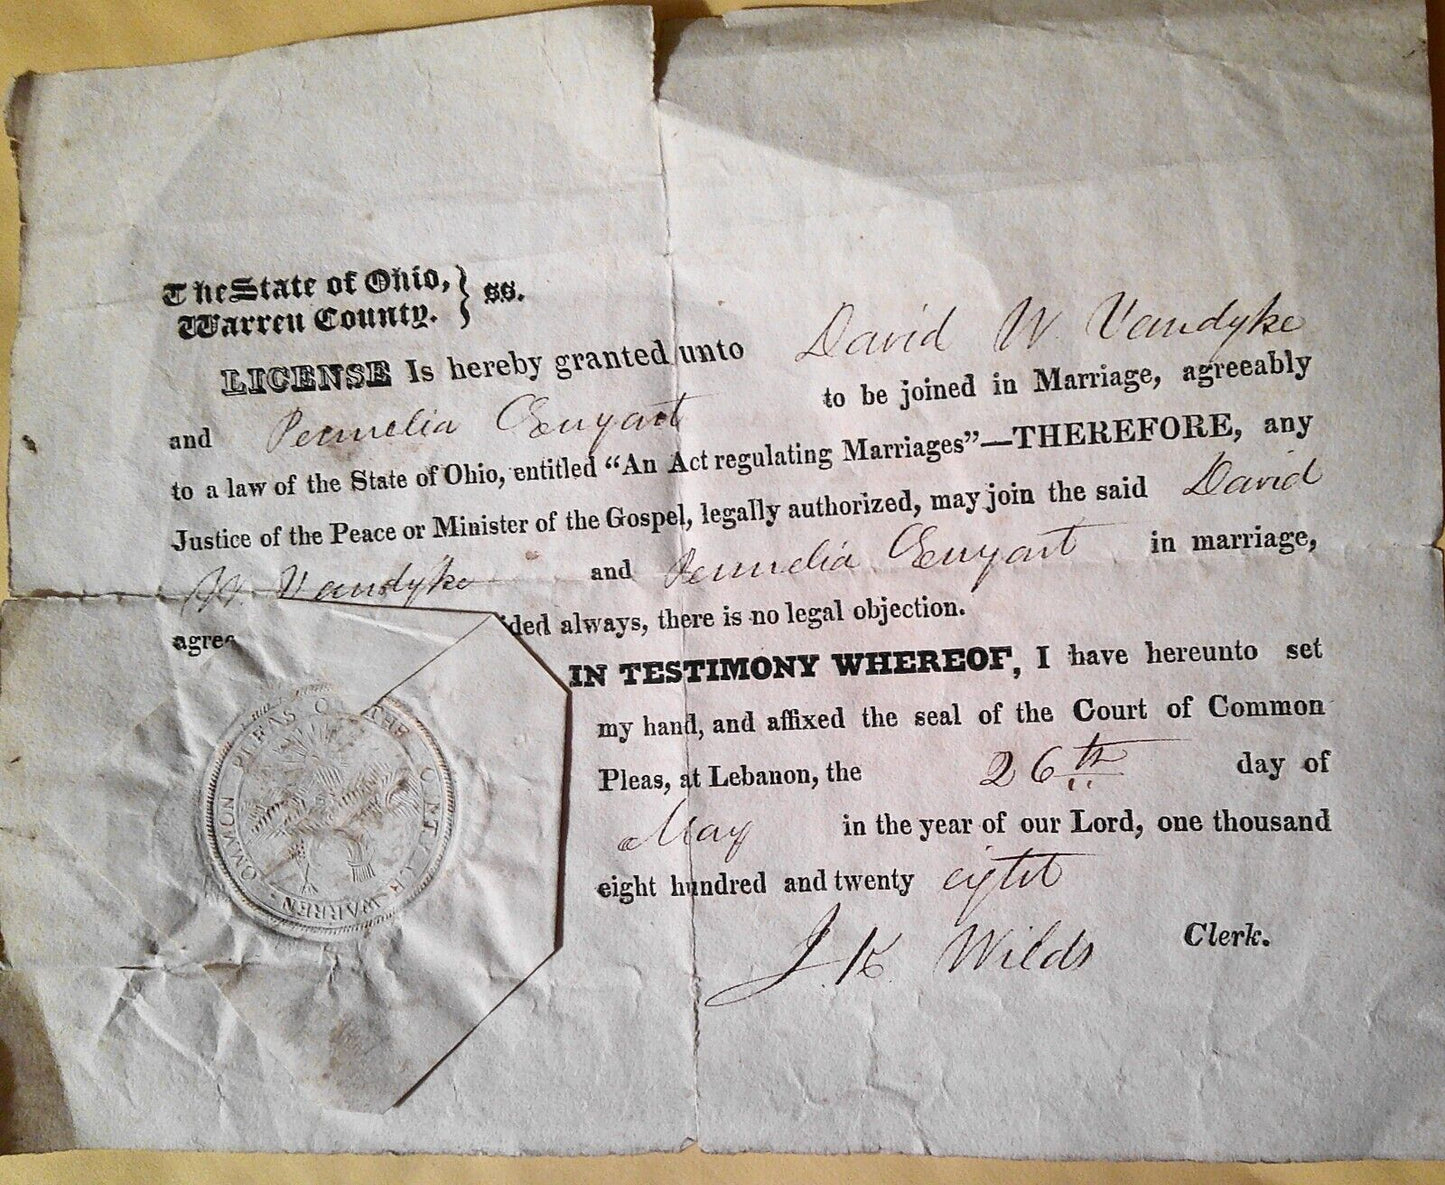 The State of Ohio, } ss.
Warren County.
LICENSE Is hereby granted unto David W. Vandyke
and Permelia Enyart to be joined in Marriage, agreeably
to a law of the State of Ohio, entitled “An Act regulating Marriages”—THEREFORE, any
Justice of the Peace or Minister of the Gospel, legally authorized, may join the said David
W. Vandyke and Permelia Enyart in marriage,
agree ided always, there is no legal objection.
IN TESTIMONY WHEREOF, I have hereunto set
my hand, and affixed the seal of the Court of Common
Pleas, at Lebanon, the 26th day of
May in the year of our Lord, one thousand
eight hundred and twenty eight
J. K. Wilds Clerk.
COMMON PLEAS O WARREN